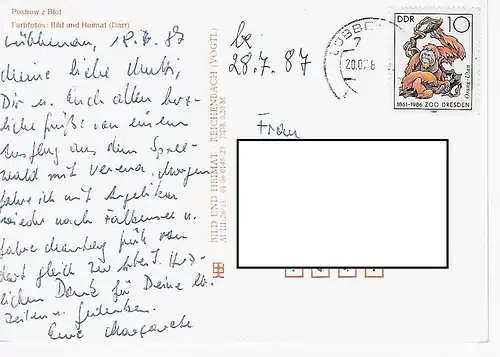 Postrow z Błot
Farbfotos: Bild und Heimat (Darr)
Lübbenau, 18. 7. 87
Meine liebe Mutti,
Dir u. Euch allen herz-
liche Grüße von einem
Ausflug aus dem Spree-
wald mit Verena. Morgen
fahre ich mit Angelika
wieder nach Falkensee u.
fahre Montag früh von
dort gleich zur Arbeit. Herz-
lichen Dank für Deine lb.
Zeilen u. Gedanken.
Eure Margarete
bz
28.7.87
BILD UND HEIMAT REICHENBACH (VOGTL)
LÜBBEN
7
20.07.8
DDR 10
Orang-Utan
1861-1986 ZOO DRESDEN
Frau